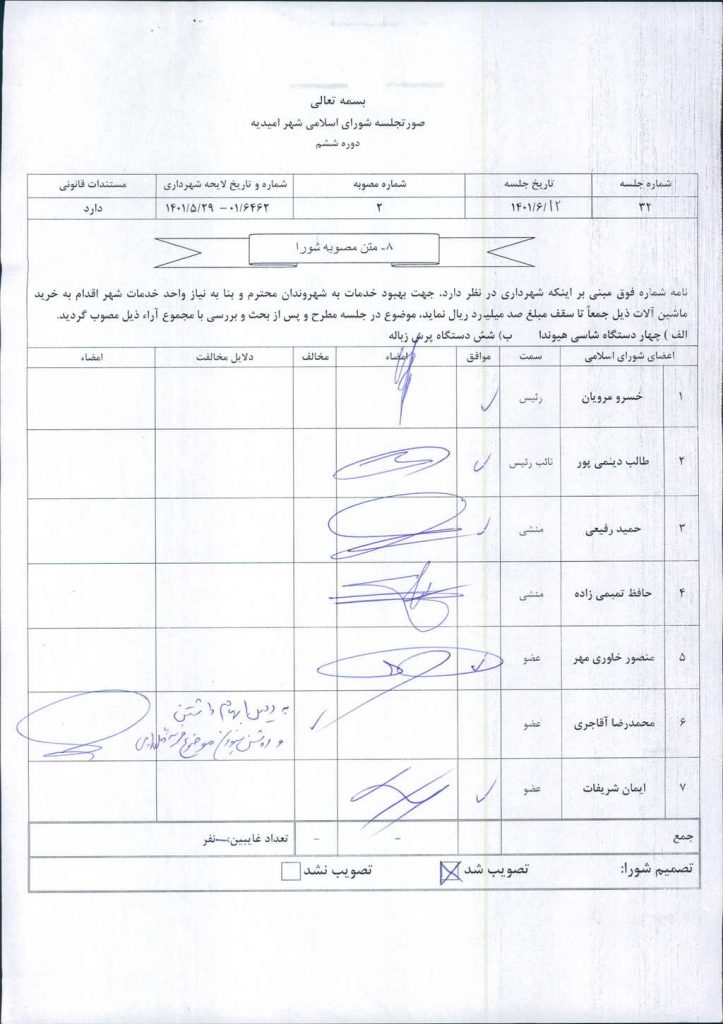 بسمه تعالی
صورتجلسه شورای اسلامی شهر امیدیه
دوره ششم
شماره جلسه تاریخ جلسه شماره مصوبه شماره و تاریخ لایحه شهرداری مستندات قانونی
۳۲ ۱۴۰۱/۶/۱۲ ۲ ۰۱/۶۴۶۲ – ۱۴۰۱/۵/۲۹ دارد
۸- متن مصوبه شورا
نامه شماره فوق مبنی بر اینکه شهرداری در نظر دارد، جهت بهبود خدمات به شهروندان محترم و بنا به نیاز واحد خدمات شهر اقدام به خرید
ماشین آلات ذیل جمعاً تا سقف مبلغ صد میلیارد ریال نماید، موضوع در جلسه مطرح و پس از بحث و بررسی با مجموع آراء ذیل مصوب گردید.
الف ) چهار دستگاه شاسی هیوندا ب) شش دستگاه پرس زباله
اعضای شورای اسلامی سمت موافق امضاء مخالف دلایل مخالفت امضاء
۱ خسرو مرویان رئیس
۲ طالب دینمی پور نائب رئیس
۳ حمید رفیعی منشی
۴ حافظ تمیمی زاده منشی
۵ منصور خاوری مهر عضو
۶ محمدرضا آقاجری عضو
به دلیل ابهام داشتن
و روشن نبودن موضوع
۷ ایمان شریفات عضو
جمع – – تعداد غایبین:—نفر
تصمیم شورا: تصویب شد تصویب نشد